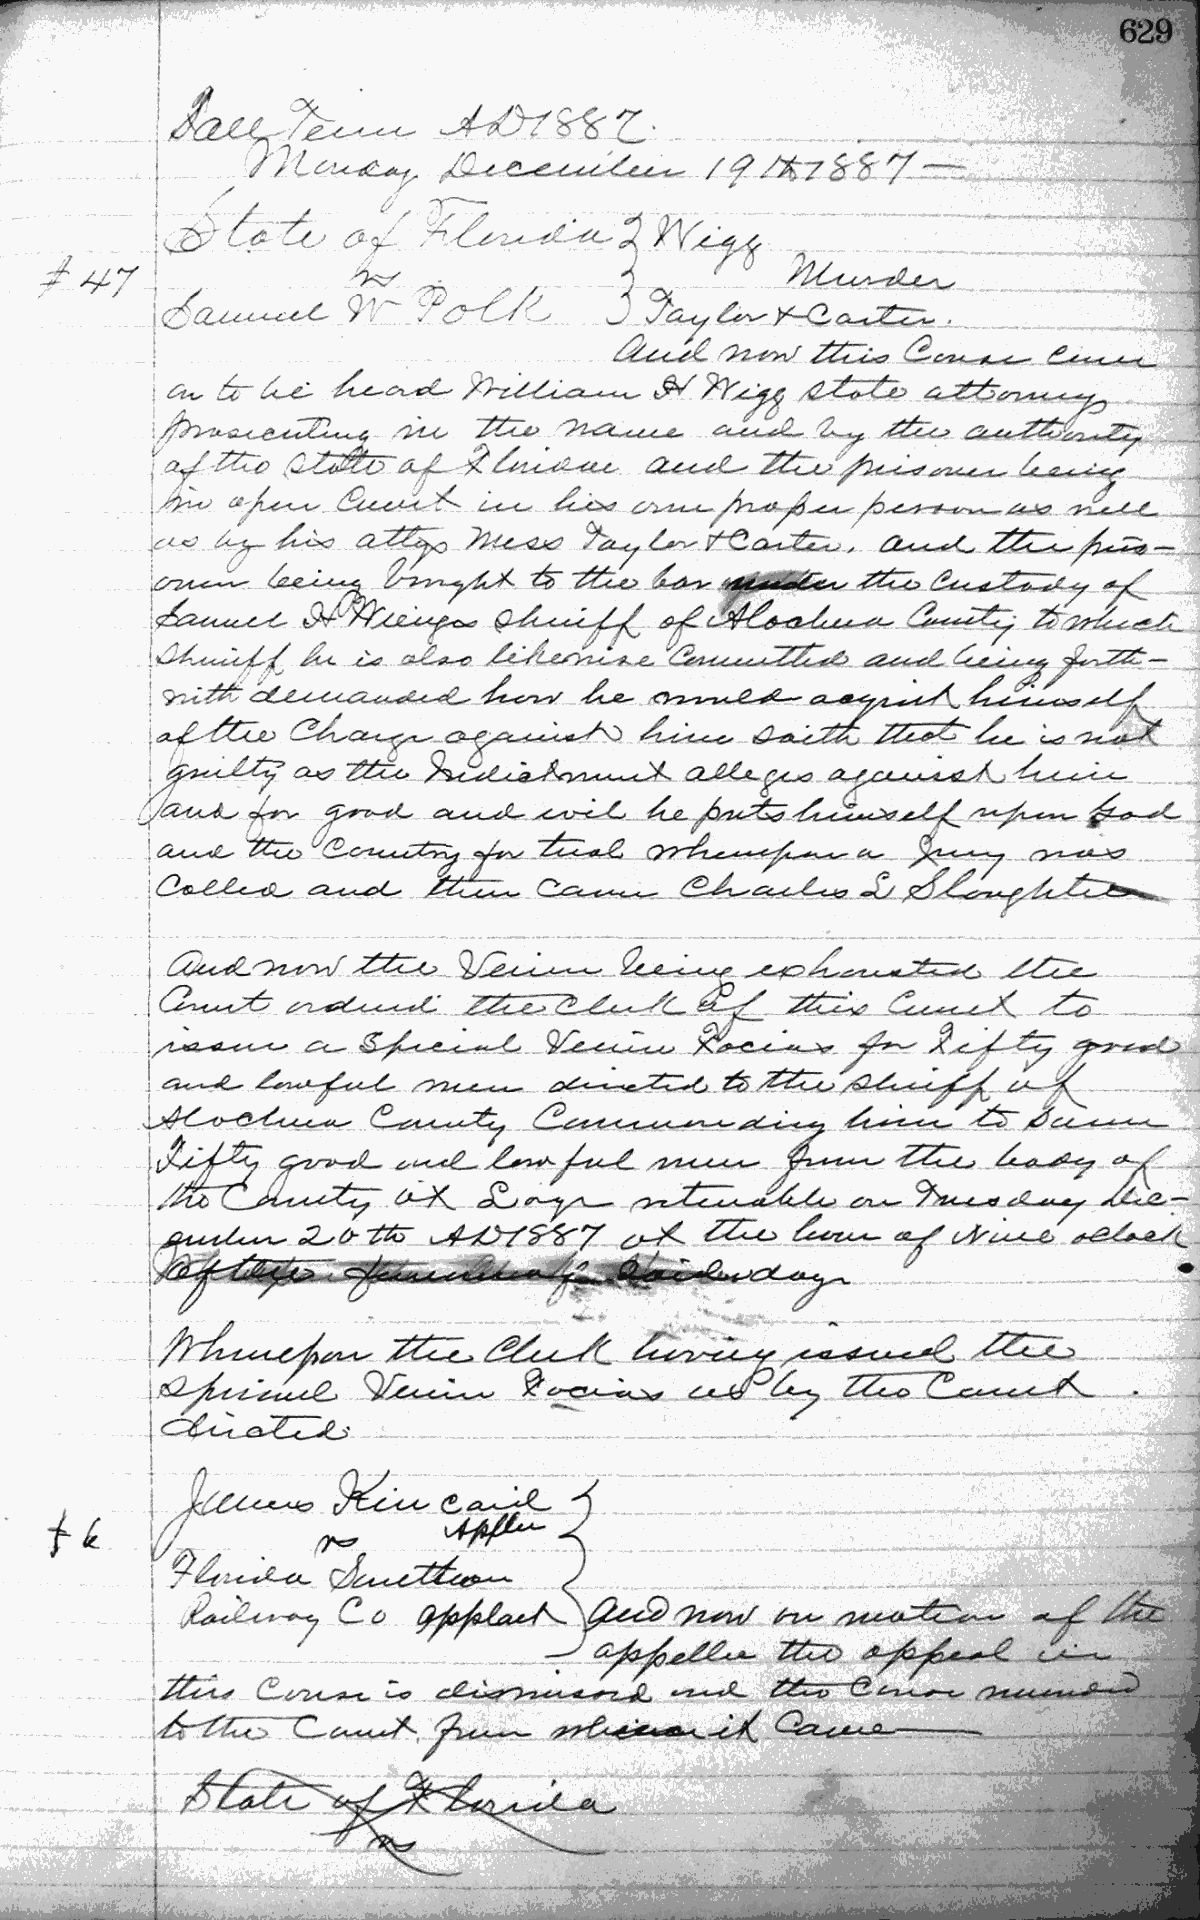 629
Fall Term AD 1887.
Monday December 19th 1887 —
State of Florida } Wigg
# 47 vs } Murder
Samuel W Polk } Taylor & Carter.
And now this Cause came
on to be heard William H Wigg state attorney
prosecuting in the name and by the authority
of the State of Florida and the prisoner being
in open Court in his own proper person as well
as by his attys Mess Taylor & Carter. and the pris-
oner being brought to the bar under the custody of
Samuel H Wienges Sheriff of Alachua County to which
Sheriff he is also likewise Committed and being forth-
with demanded how he would acquit himself
of the Charge against him saith that he is not
guilty as the Indictment alleges against him
and for good and evil he puts himself upon God
and the Country for trial whereupon a Jury was
Called and then came Charles L Slaughter
And now the Venire being exhausted the
Court ordered the Clerk of this Court to
issue a Special Venire Facias for Fifty good
and lawful men directed to the sheriff of
Alachua County Commanding him to summ
Fifty good and lawful men from the body of
the County at Large returnable on Tuesday Dec-
ember 20th AD 1887 at the hour of Nine oclock
of the forenoon of said day
Whereupon the Clerk having issued the
Special Venire Facias as by the Court
directed.
James Kincaid }
# 6 vs Apllee
Florida Southern
Railway Co applant } And now on motion of the
appellee the appeal in
this Cause is dismissed and the Cause remanded
to the Court from whence it Came —
State of Florida
vs